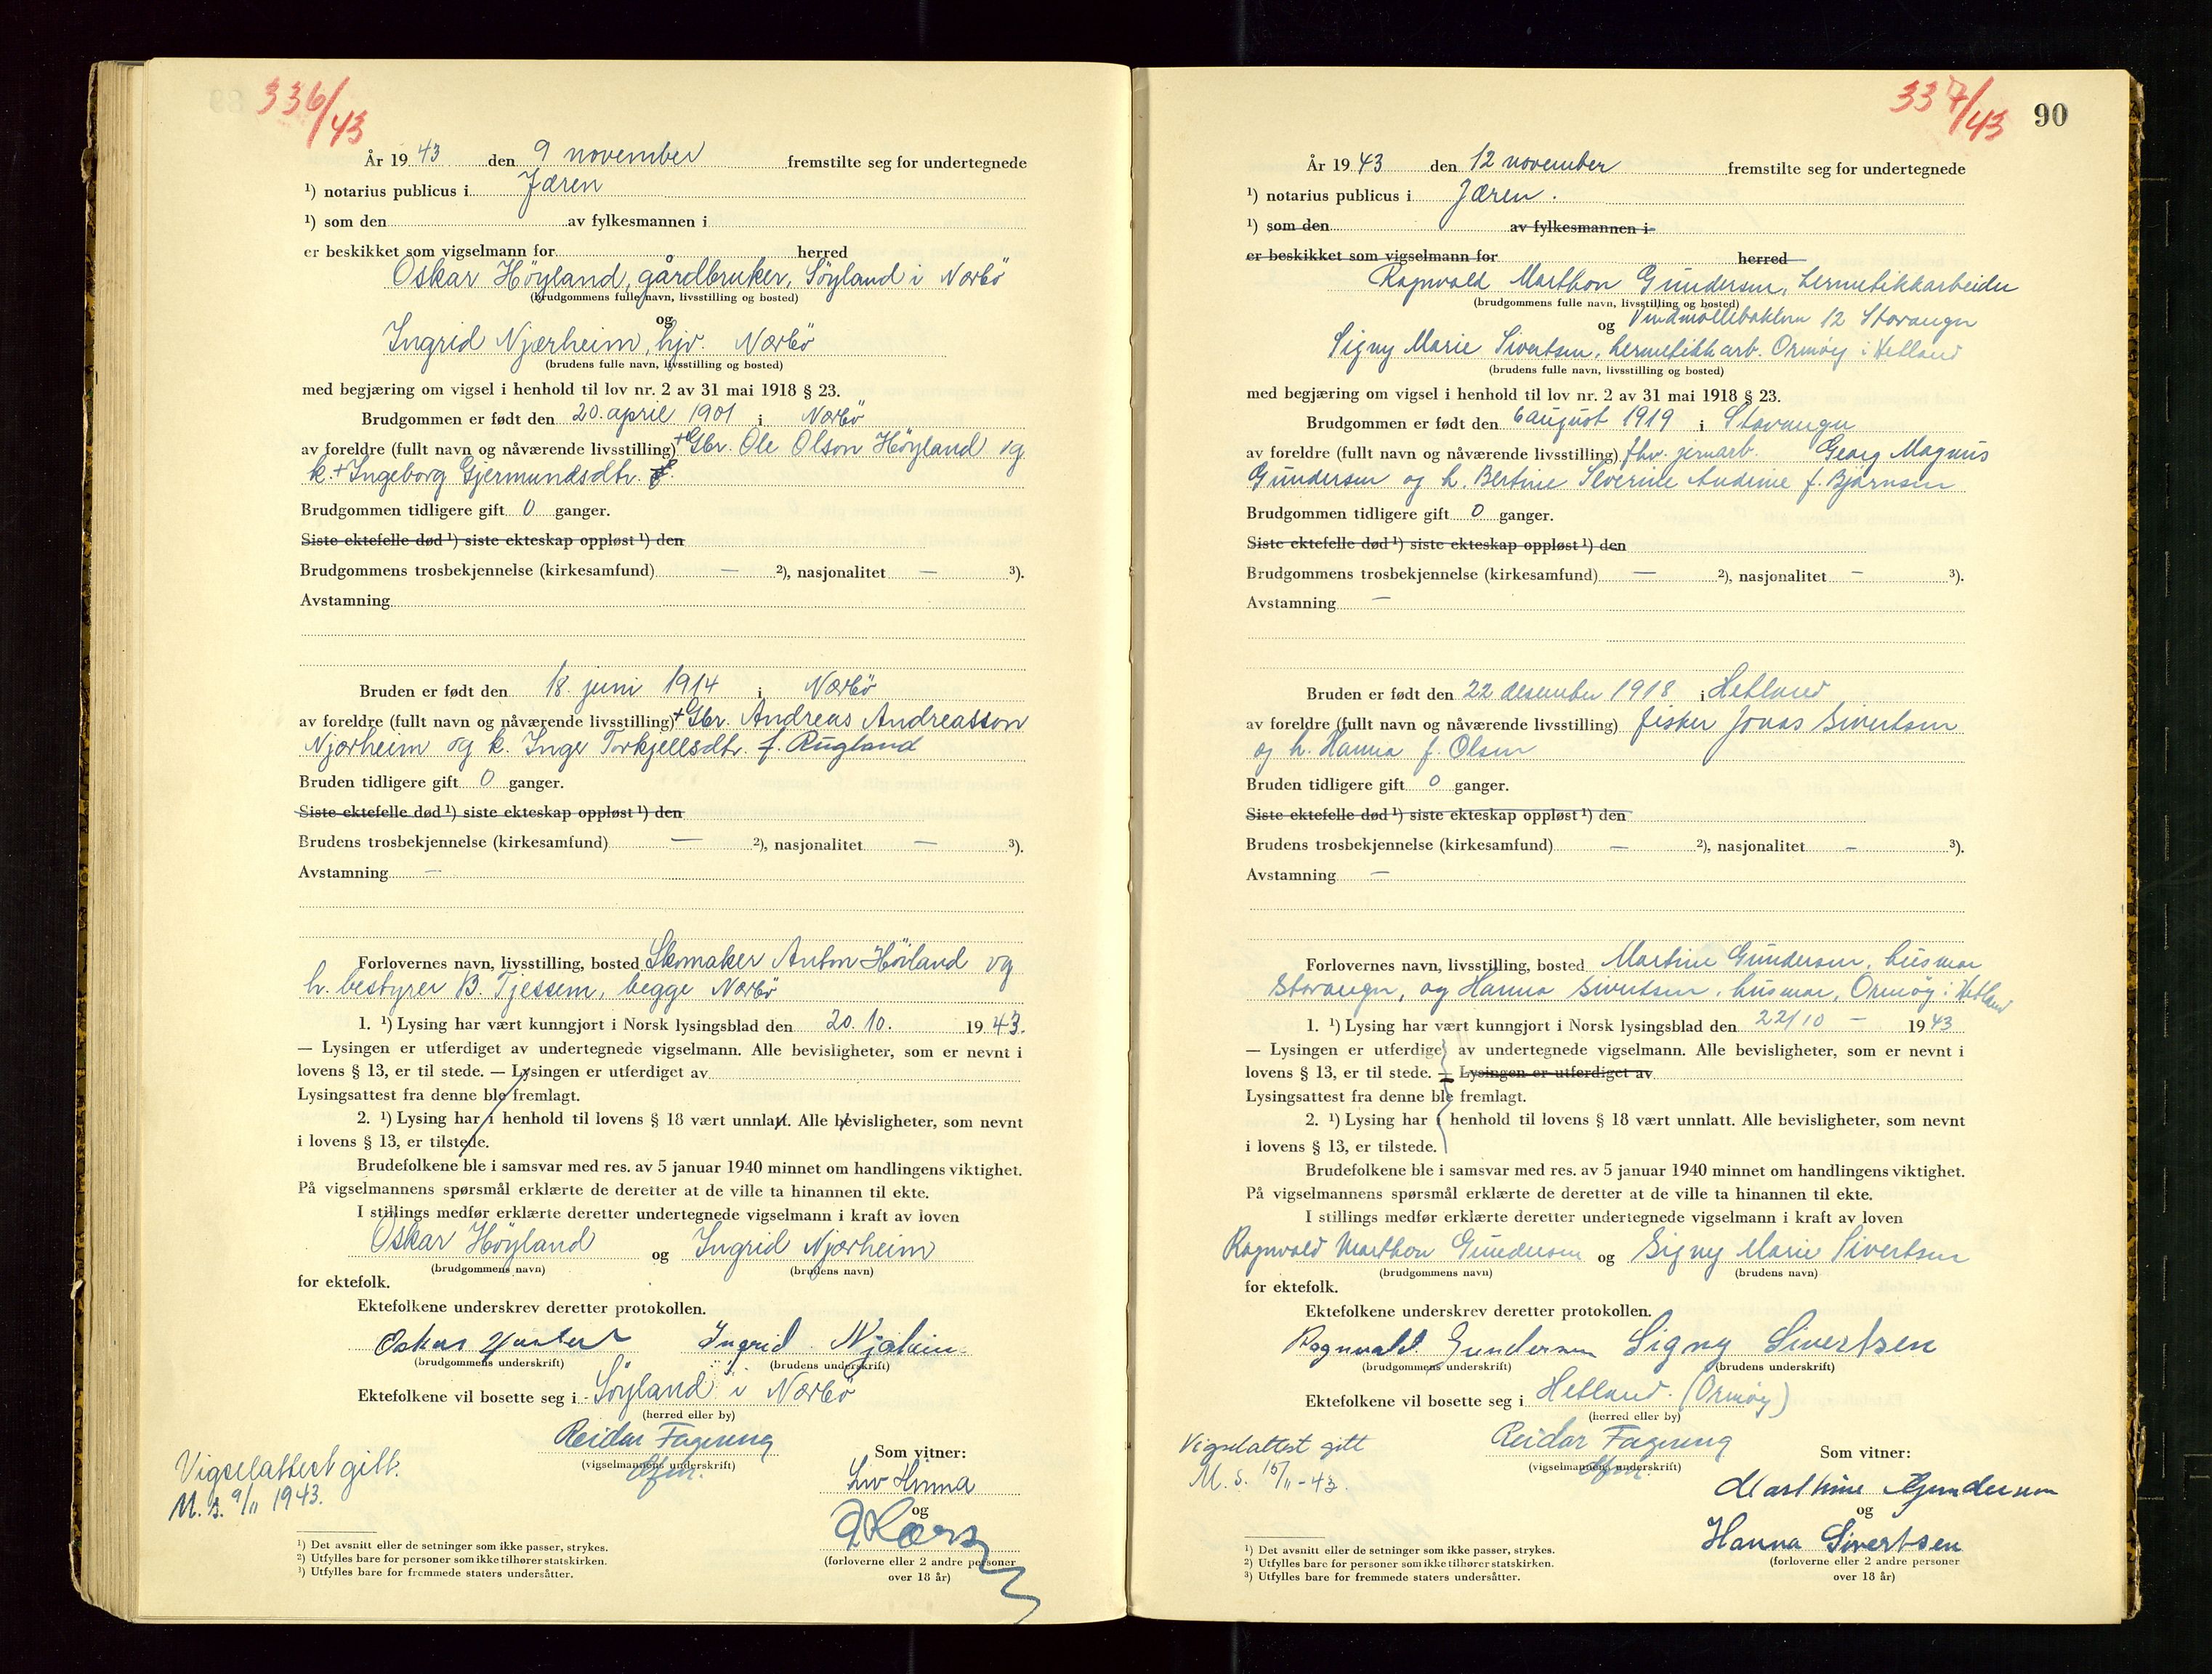 336/43
År 19 43 den 9 november fremstilte seg for undertegnede
¹) notarius publicus i Jæren
¹) som den av fylkesmannen i
er beskikket som vigselmann for herred
Oskar Höyland, gårdbruker, Söyland i Nærbö
(brudgommens fulle navn, livsstilling og bosted)
og
Ingrid Njærheim, hjv. Nærbö
(brudens fulle navn, livsstilling og bosted)
med begjæring om vigsel i henhold til lov nr. 2 av 31 mai 1918 § 23.
Brudgommen er født den 20. april 1901 i Nærbö
av foreldre (fullt navn og nåværende livsstilling) + Gbr. Ole Olson Höyland og
k. + Ingeborg Gjermundsdtr.
Brudgommen tidligere gift 0 ganger.
Siste ektefelle død ¹) siste ekteskap oppløst ¹) den
Brudgommens trosbekjennelse (kirkesamfund) — ²), nasjonalitet — ³).
Avstamning
Bruden er født den 18. juni 1914 i Nærbö
av foreldre (fullt navn og nåværende livsstilling) + Gbr. Andreas Andreasson
Njærheim og k. Inger Torkjellsdtr. f. Rugland
Bruden tidligere gift 0 ganger.
Siste ektefelle død ¹) siste ekteskap oppløst ¹) den
Brudens trosbekjennelse (kirkesamfund) — ²), nasjonalitet — ³).
Avstamning —
Forlovernes navn, livsstilling, bosted Skomaker Anton Höiland og
h. bestyrer B. Tjessem, begge Nærbö
1. ¹) Lysing har vært kunngjort i Norsk lysingsblad den 20. 10. 19 43.
— Lysingen er utferdiget av undertegnede vigselmann. Alle bevisligheter, som er nevnt i
lovens § 13, er til stede. — Lysingen er utferdiget av
Lysingsattest fra denne ble fremlagt.
2. ¹) Lysing har i henhold til lovens § 18 vært unnlatt. Alle bevisligheter, som nevnt
i lovens § 13, er tilstede.
Brudefolkene ble i samsvar med res. av 5 januar 1940 minnet om handlingens viktighet.
På vigselmannens spørsmål erklærte de deretter at de ville ta hinannen til ekte.
I stillings medfør erklærte deretter undertegnede vigselmann i kraft av loven
Oskar Höyland og Ingrid Njærheim
(brudgommens navn) (brudens navn)
for ektefolk.
Ektefolkene underskrev deretter protokollen.
Oskar Ingrid
(brudgommens underskrift) (brudens underskrift)
Ektefolkene vil bosette seg i Söyland i Nærbö
(herred eller by)
Reidar Fagerung
(vigselmannens underskrift)
Som vitner:
Liv Hinna
og
(forloverne eller 2 andre personer
over 18 år)
Vigselattest gitt.
M. s. 9/11 1943.
¹) Det avsnitt eller de setninger som ikke passer, strykes.
²) Utfylles bare for personer som ikke tilhører statskirken.
³) Utfylles bare for fremmede staters undersåtter.
337/43
90
År 19 43 den 12 november fremstilte seg for undertegnede
¹) notarius publicus i Jæren.
¹) som den av fylkesmannen i
er beskikket som vigselmann for herred
Ragnvald Marthon Gundersen, hermetikkarbeider
(brudgommens fulle navn, livsstilling og bosted)
og Vindmøllebakken 12 Stavanger
Signy Marie Sivertsen, hermetikkarb. Ormøy i Hetland
(brudens fulle navn, livsstilling og bosted)
med begjæring om vigsel i henhold til lov nr. 2 av 31 mai 1918 § 23.
Brudgommen er født den 6 august 1919 i Stavanger
av foreldre (fullt navn og nåværende livsstilling) fhv. jernarb. Georg Magnus
Gundersen og h. Bertine Severine Andine f. Bjørnsen
Brudgommen tidligere gift 0 ganger.
Siste ektefelle død ¹) siste ekteskap oppløst ¹) den
Brudgommens trosbekjennelse (kirkesamfund) — ²), nasjonalitet — ³).
Avstamning —
Bruden er født den 22 desember 1918 i Hetland
av foreldre (fullt navn og nåværende livsstilling) fisker Jonas Sivertsen
og h. Hanna f. Olsen
Bruden tidligere gift 0 ganger.
Siste ektefelle død ¹) siste ekteskap oppløst ¹) den
Brudens trosbekjennelse (kirkesamfund) — ²), nasjonalitet — ³).
Avstamning —
Forlovernes navn, livsstilling, bosted Martine Gundersen, husmor
Stavanger, og Hanna Sivertsen, husmor, Ormøy i Hetland
1. ¹) Lysing har vært kunngjort i Norsk lysingsblad den 22/10 — 19 43
— Lysingen er utferdiget av undertegnede vigselmann. Alle bevisligheter, som er nevnt i
lovens § 13, er til stede. — Lysingen er utferdiget av
Lysingsattest fra denne ble fremlagt.
2. ¹) Lysing har i henhold til lovens § 18 vært unnlatt. Alle bevisligheter, som nevnt
i lovens § 13, er tilstede.
Brudefolkene ble i samsvar med res. av 5 januar 1940 minnet om handlingens viktighet.
På vigselmannens spørsmål erklærte de deretter at de ville ta hinannen til ekte.
I stillings medfør erklærte deretter undertegnede vigselmann i kraft av loven
Ragnvald Marthon Gundersen og Signy Marie Sivertsen
(brudgommens navn) (brudens navn)
for ektefolk.
Ektefolkene underskrev deretter protokollen.
Ragnvald Gundersen Signy Sivertsen
(brudgommens underskrift) (brudens underskrift)
Ektefolkene vil bosette seg i Hetland. (Ormøy)
(herred eller by)
Reidar Fagerung
(vigselmannens underskrift)
Som vitner:
Marthine Gundersen
og
Hanna Sivertsen
(forloverne eller 2 andre personer
over 18 år)
Vigselattest gitt
M. s. 15/11-43.
¹) Det avsnitt eller de setninger som ikke passer, strykes.
²) Utfylles bare for personer som ikke tilhører statskirken.
³) Utfylles bare for fremmede staters undersåtter.